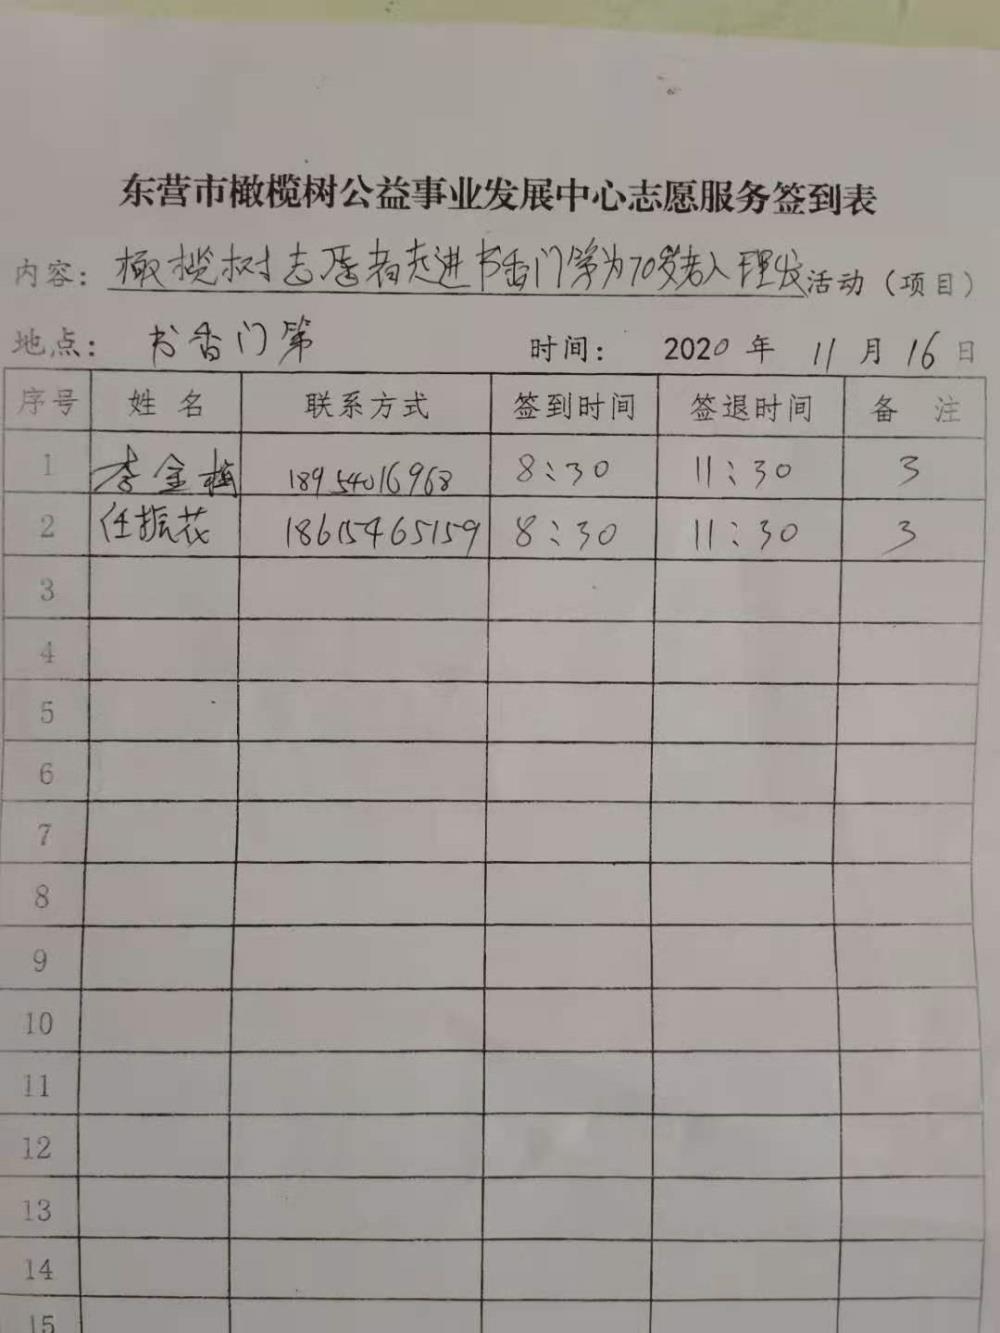 东营市橄榄树公益事业发展中心志愿服务签到表
内容：橄榄树志愿者走进书香门第为70岁老人理发活动（项目）
地点：书香门第 时间：2020年11月16日
序号 姓名 联系方式 签到时间 签退时间 备注
1 李金梅 18954016968 8:30 11:30 3
2 任振花 18615465159 8:30 11:30 3
3
4
5
6
7
8
9
10
11
12
13
14
15